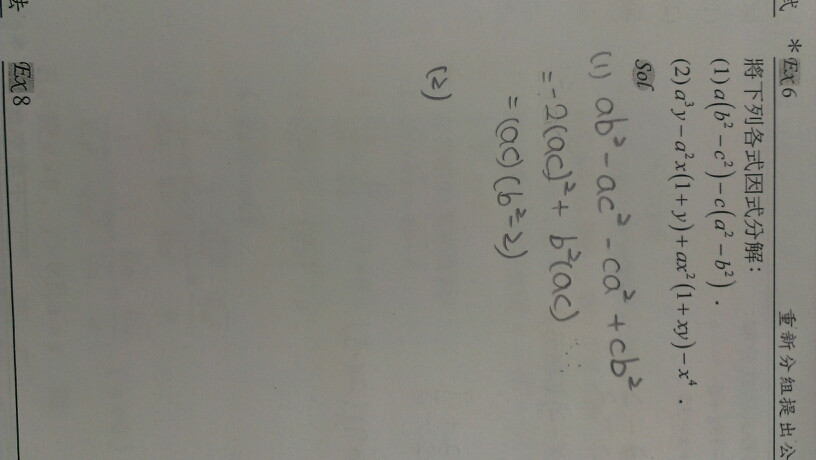 重新分組提出公
* Ex 6
將下列各式因式分解：
(1) a(b² − c²) − c(a² − b²)．
(2) a³y − a²x(1 + y) + ax²(1 + xy) − x⁴．
Sol
(1) ab² − ac² − ca² + cb²
= -2(ac)² + b²(ac)
= (ac)(b²-2)
(2)
Ex 8